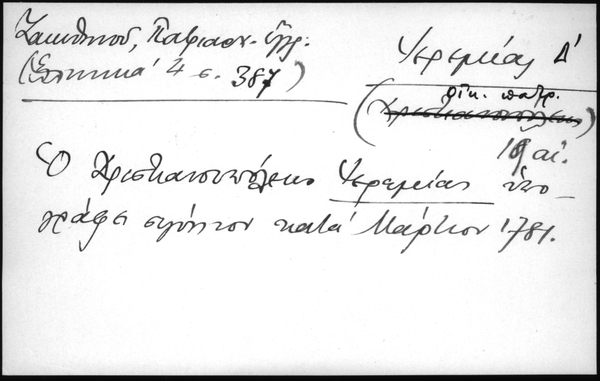 Ζακυθηνοῦ, Πατριαρχ. ἔγγρ.
(Ἑλληνικά 4 σ. 387)
Ἱερεμίας Δ΄
οἰκ. πατρ.
(Χριστιανουπόλεως)
18 αἰ.
Ὁ Χριστιανουπόλεως Ἱερεμίας ὑπο-
γράφει σιγίλλιον κατά Μάρτιον 1781.